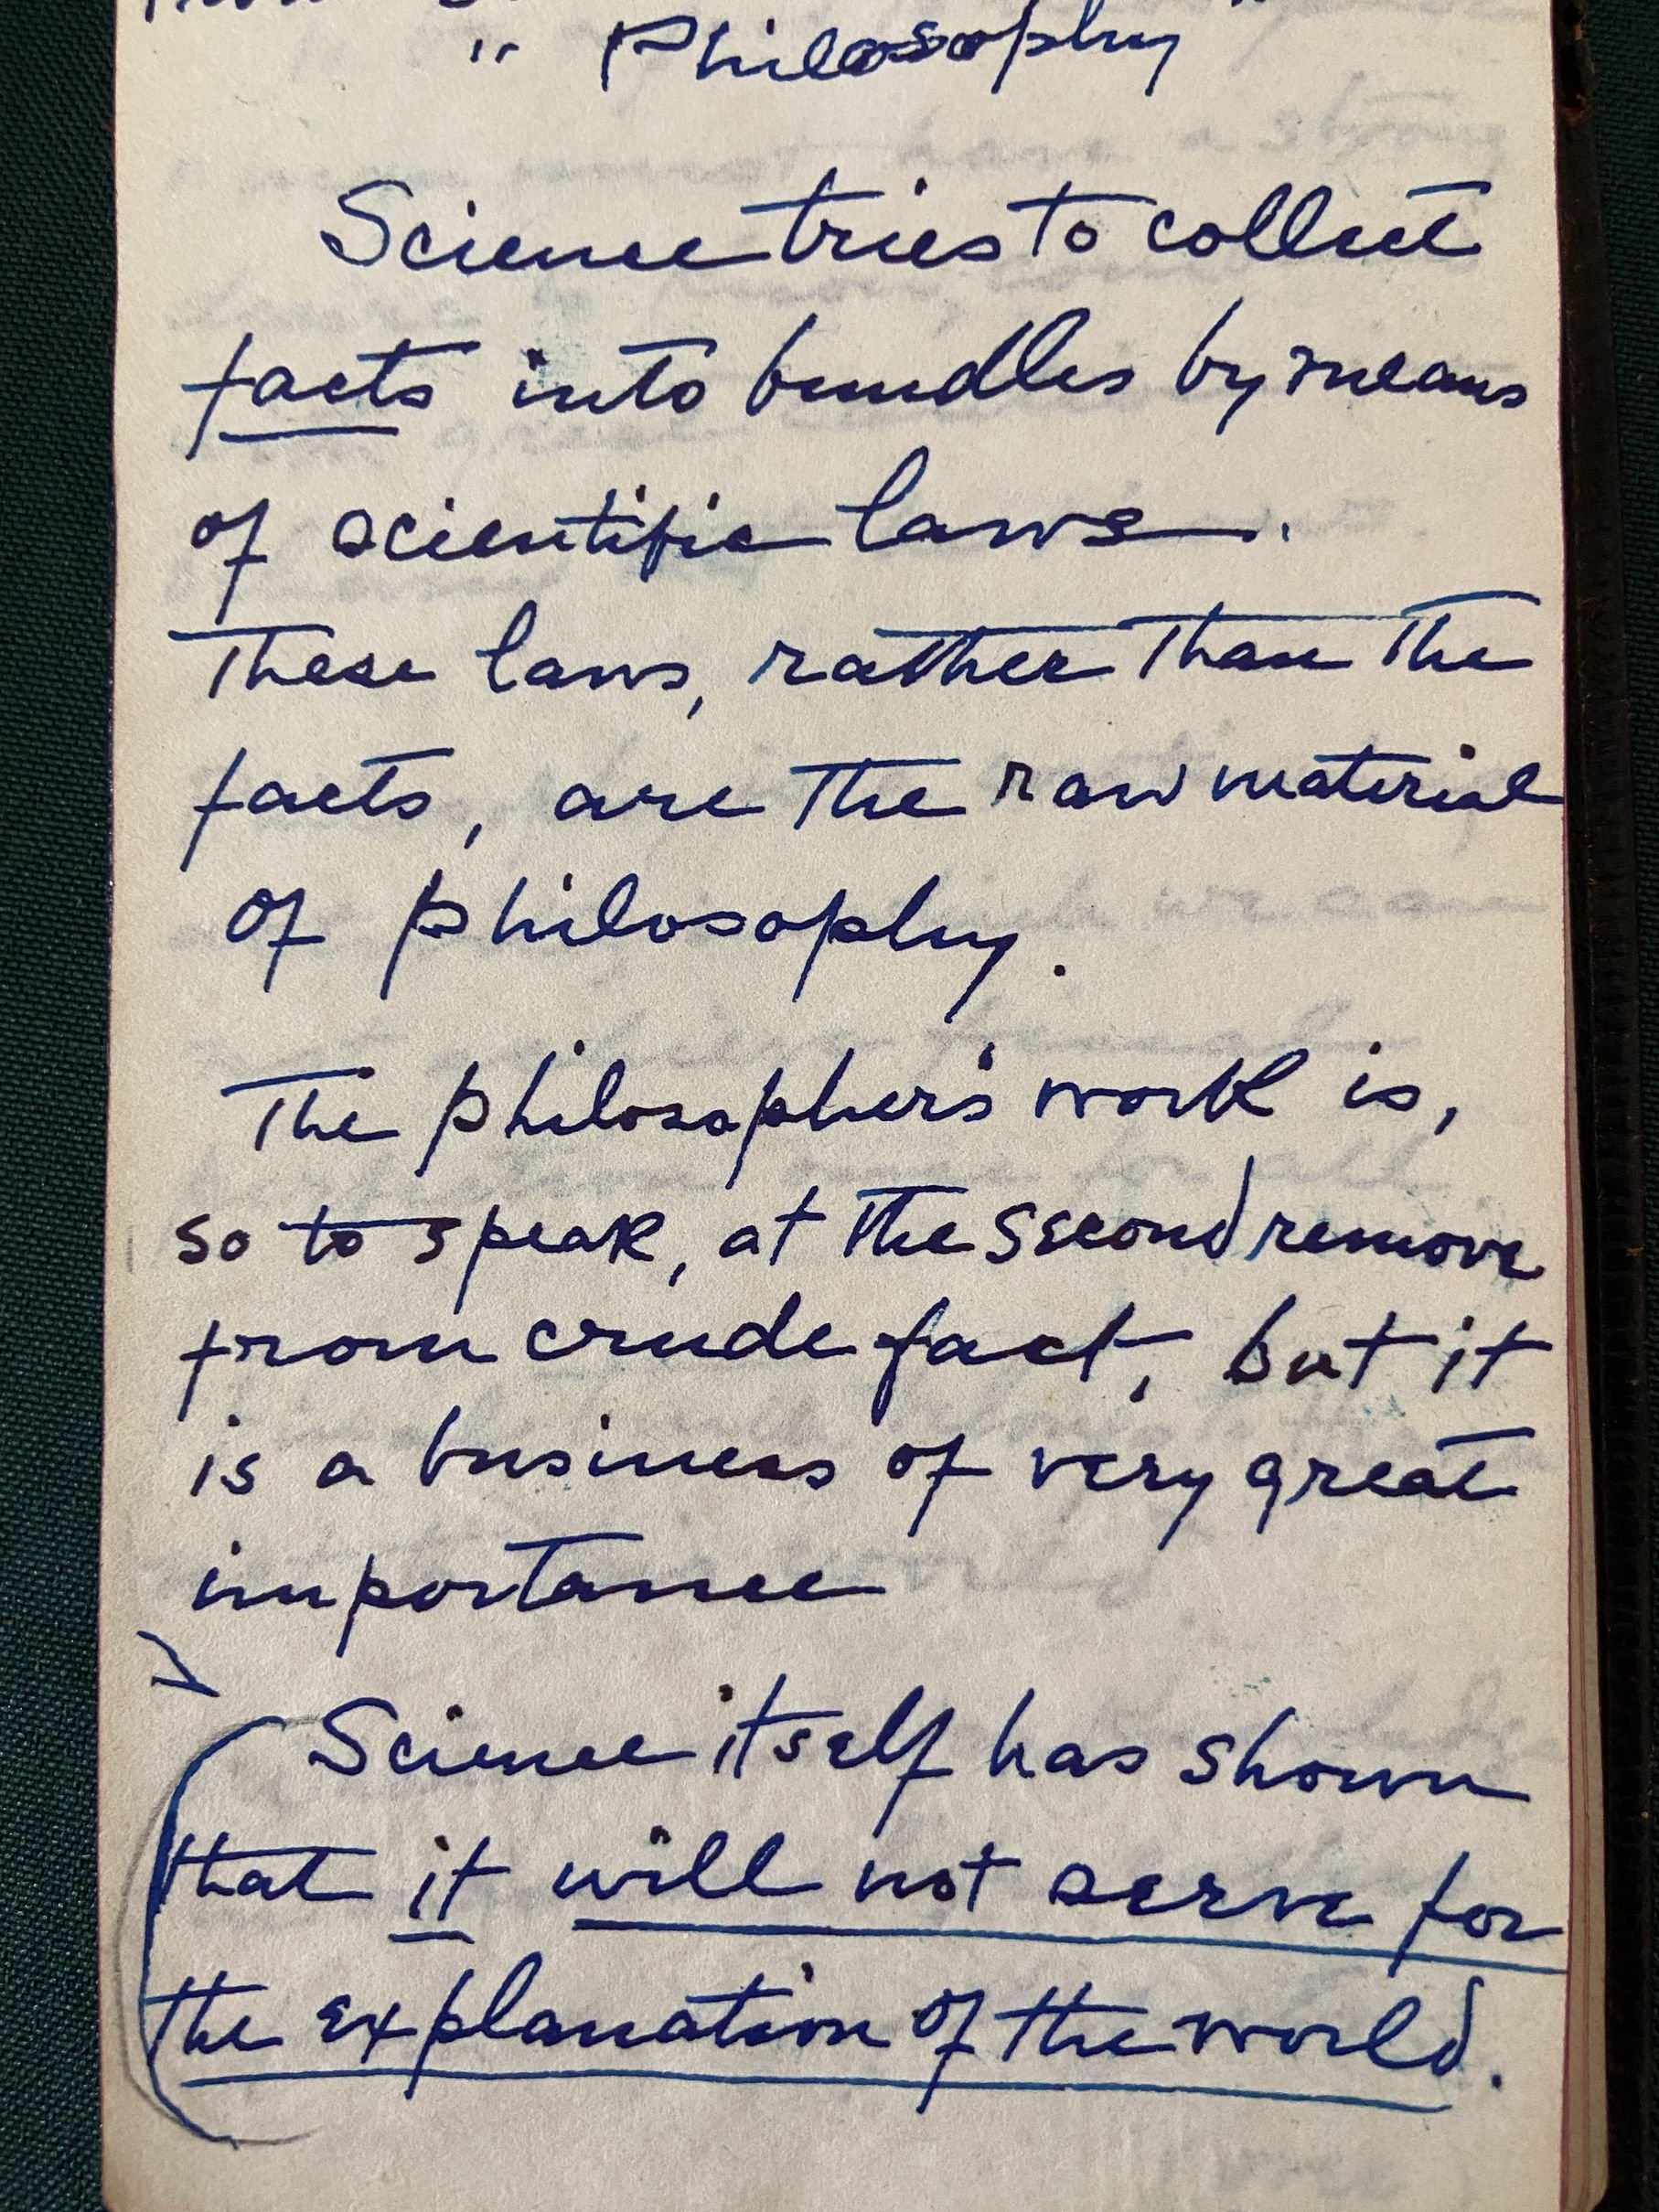 " Philosophy "
Science tries to collect
facts into bundles by means
of scientific laws.
These laws, rather than the
facts, are the raw material
of philosophy.
The philosopher's work is,
so to speak, at the second remove
from crude fact, but it
is a business of very great
importance
Science itself has shown
that it will not serve for
the explanation of the world.